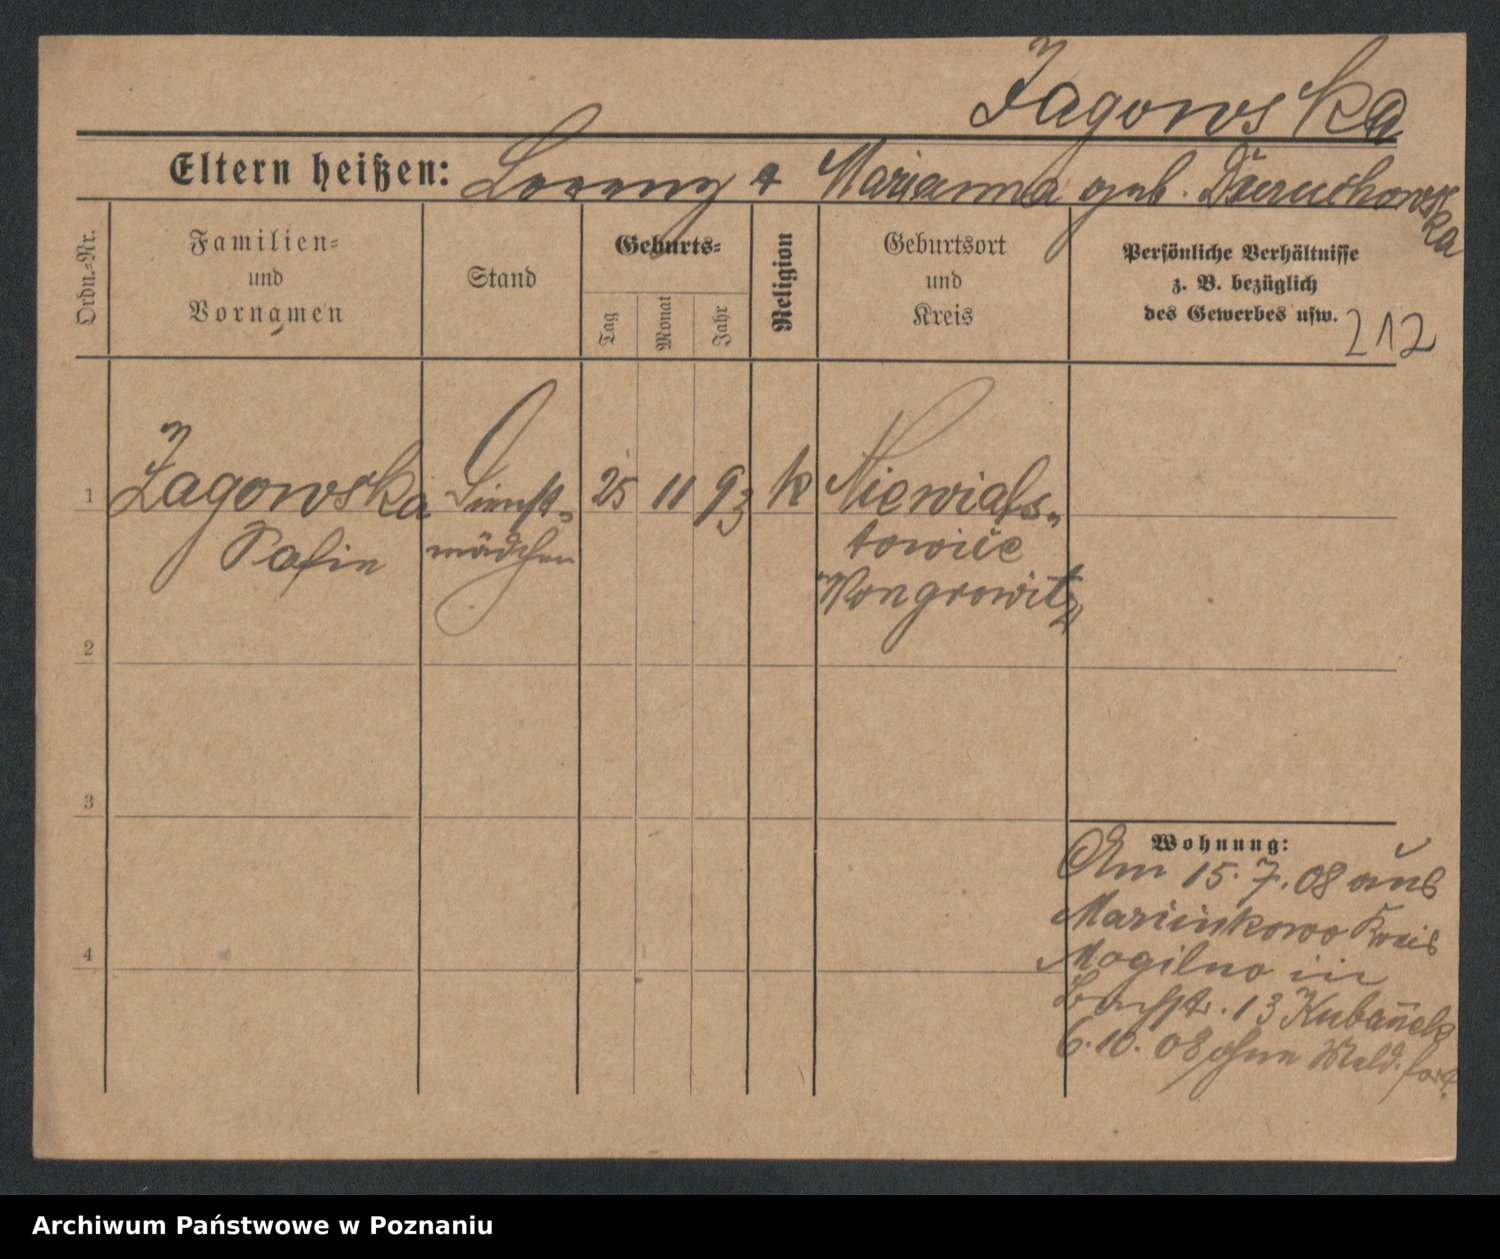 Jagowska
Eltern heißen: Lorenz & Marianna geb. Dzeruchowska
Ordn.=Nr.
Familien=
und
Vornamen
Stand
Geburts=
Tag
Monat
Jahr
Religion
Geburtsort
und
Kreis
Persönliche Verhältnisse
z. B. bezüglich
des Gewerbes usw.
212
1 Jagowska Dienst= 25 11 93 k Niewiafs=
Sofie mädchen towice
Wongrowitz
2
3
4
Wohnung:
Am 15.7.08 aus
Marcinkowo Kreis
Mogilno in
13 Kubanek
6.10.08 ohne Meld. fort.
Archiwum Państwowe w Poznaniu